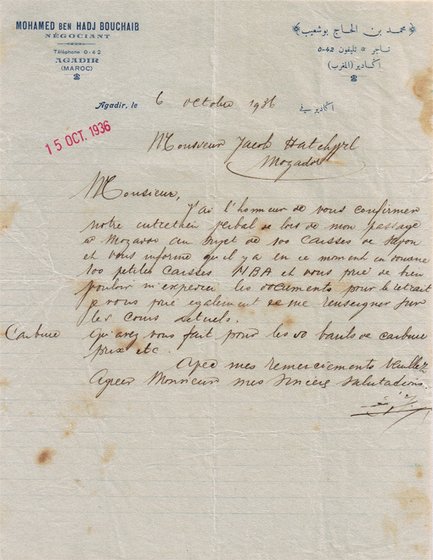 MOHAMED BEN HADJ BOUCHAIB
NÉGOCIANT
Téléphone 0-42
AGADIR
(MAROC)
محمد بن الحاج بوشعيب
تاجر * تليفون 42-0
اڭادير (المغرب)
Agadir, le 6 octobre 1936 اڭادير في
15 OCT. 1936
Monsieur Jacob
Mogador
Monsieur,
J'ai l'honneur de vous confirmer
notre entretien verbal de lors de mon passage
a Mogador au sujet de 100 caisses de savon
et vous informe qu'il y a en ce moment en douane
100 petites caisses MBA et vous prie de bien
vouloir m'expedier les documents pour le retrait
je vous prie egalement de me renseigner sur
les cours actuels.
Carbure qu'avez vous fait pour les 50 barils de carbure
prix etc.
Avec mes remerciements Veuillez
Agreer Monsieur mes sinceres salutations.